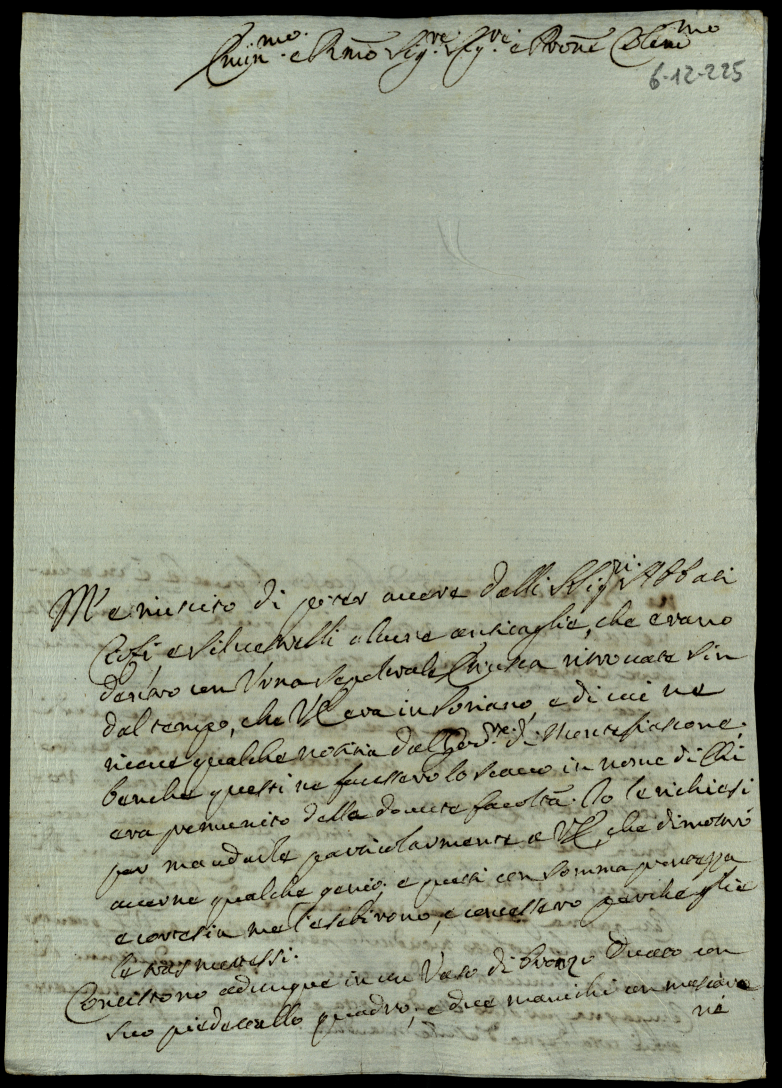 Emin.mo e Rmo Sig.re Sig.re e Prone Colenmo
6-12-225
M'è riuscito di poter avere dalli SSig.ri Abbati
e Silvestrelli alcune anticaglie, che erano
dentro un Urna sepolcrale Etrusca ritrovata sin
dal tempo, che VE era in Soriano, e di cui ne
riceve qualche notizia dal di Montefiascone;
benche questi ne facessero lo scavo in nome di chi
era premunito della dovuta facoltà. Io le richiesi
per mandarle particolarmente a VE, che dimostrò
averne qualche genio; e questi con somma prontezza
e cortesia me l'esebirono, e concessero perche glie
le trasmettessi.
Consistono adunque in un Vaso di bronzo Ovato con
suo piedestallo quadro; e due manichi con mascare
ne